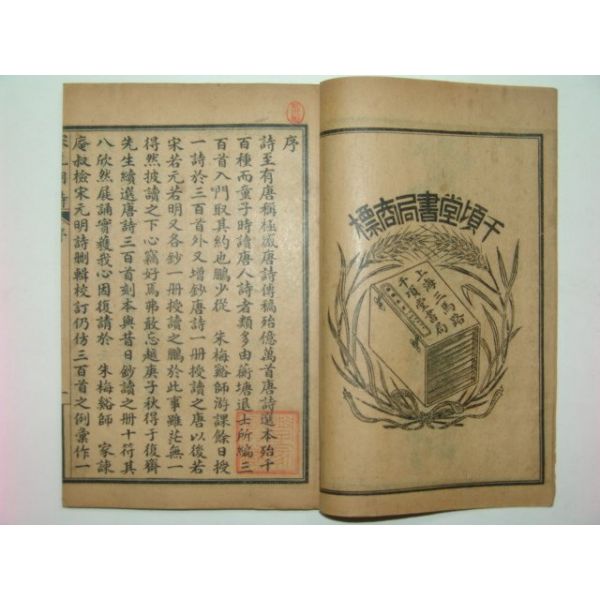 千頃堂書局商標
上海三馬路
千頃堂書局
序
詩至有唐稱極盛唐詩傳稿殆億萬首唐詩選本殆千
百種而童子時讀唐人詩者類多由衡塘退士所編三
百首入門取其約也鵬少從 朱梅谿師游課餘日授
一詩於三百首外又增鈔唐詩一册授讀之唐以後若
宋若元若明又各鈔一册授讀之鵬於此事雖茫無一
得然披讀之下心竊好焉弗敢忘越庚子秋得于復齋
先生續選唐詩三百首刻本與昔日鈔讀之册十符其
八欣然展誦實獲我心因復請於 朱梅谿師 家諫
庵叔檢宋元明詩刪輯校訂仍仿三百首之例彙作一